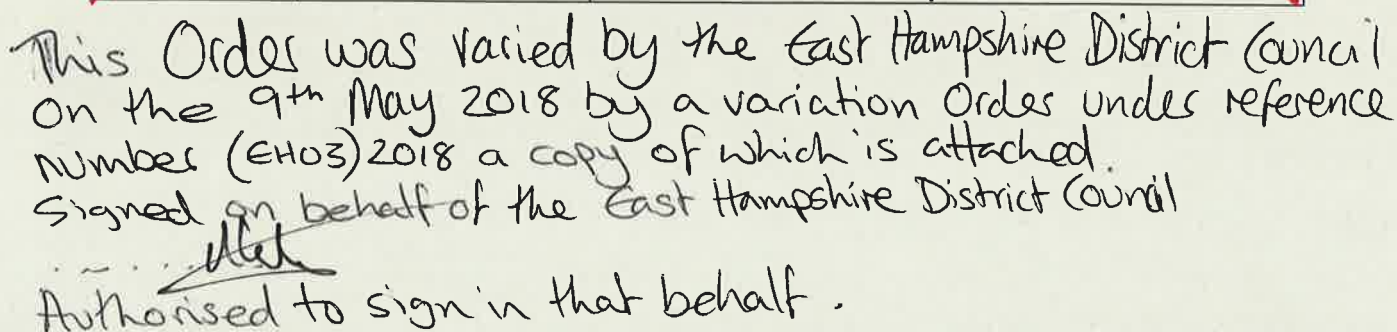 This Order was varied by the East Hampshire District Council
on the 9th May 2018 by a variation Order under reference
number (EH03)2018 a copy of which is attached.
Signed on behalf of the East Hampshire District Council
Authorised to sign in that behalf.